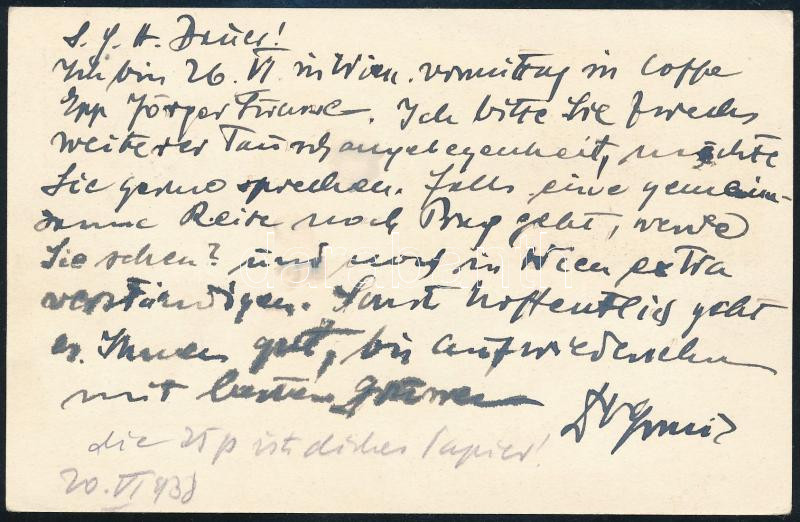 S. g. H. Bauer!
Ich bin 26. VI in Wien. vormittag in Caffe
Ich bitte Sie zwecks
weiterer Tauschangelegenheit, möchte
Sie gerne sprechen. Falls eine gemein-
same Reise nach Prag geht, werde
Sie sehen? und noch in Wien extra
verständigen. Sonst hoffentlich geht
es Ihnen gut, bis aufwiedersehen
mit besten Grüssen
die 25 p ist dickes Papier!
20. VI 938